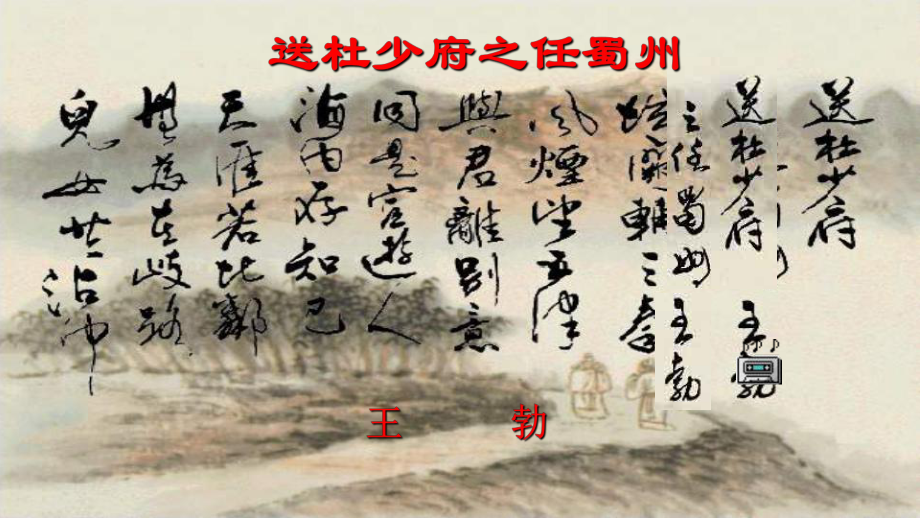 送杜少府之任蜀州
送杜少府
送杜少府 王勃
之任蜀州 王勃
城闕輔三秦
風煙望五津
與君離別意
同是宦遊人
海內存知己
天涯若比鄰
無為在岐路
兒女共沾巾
王 勃